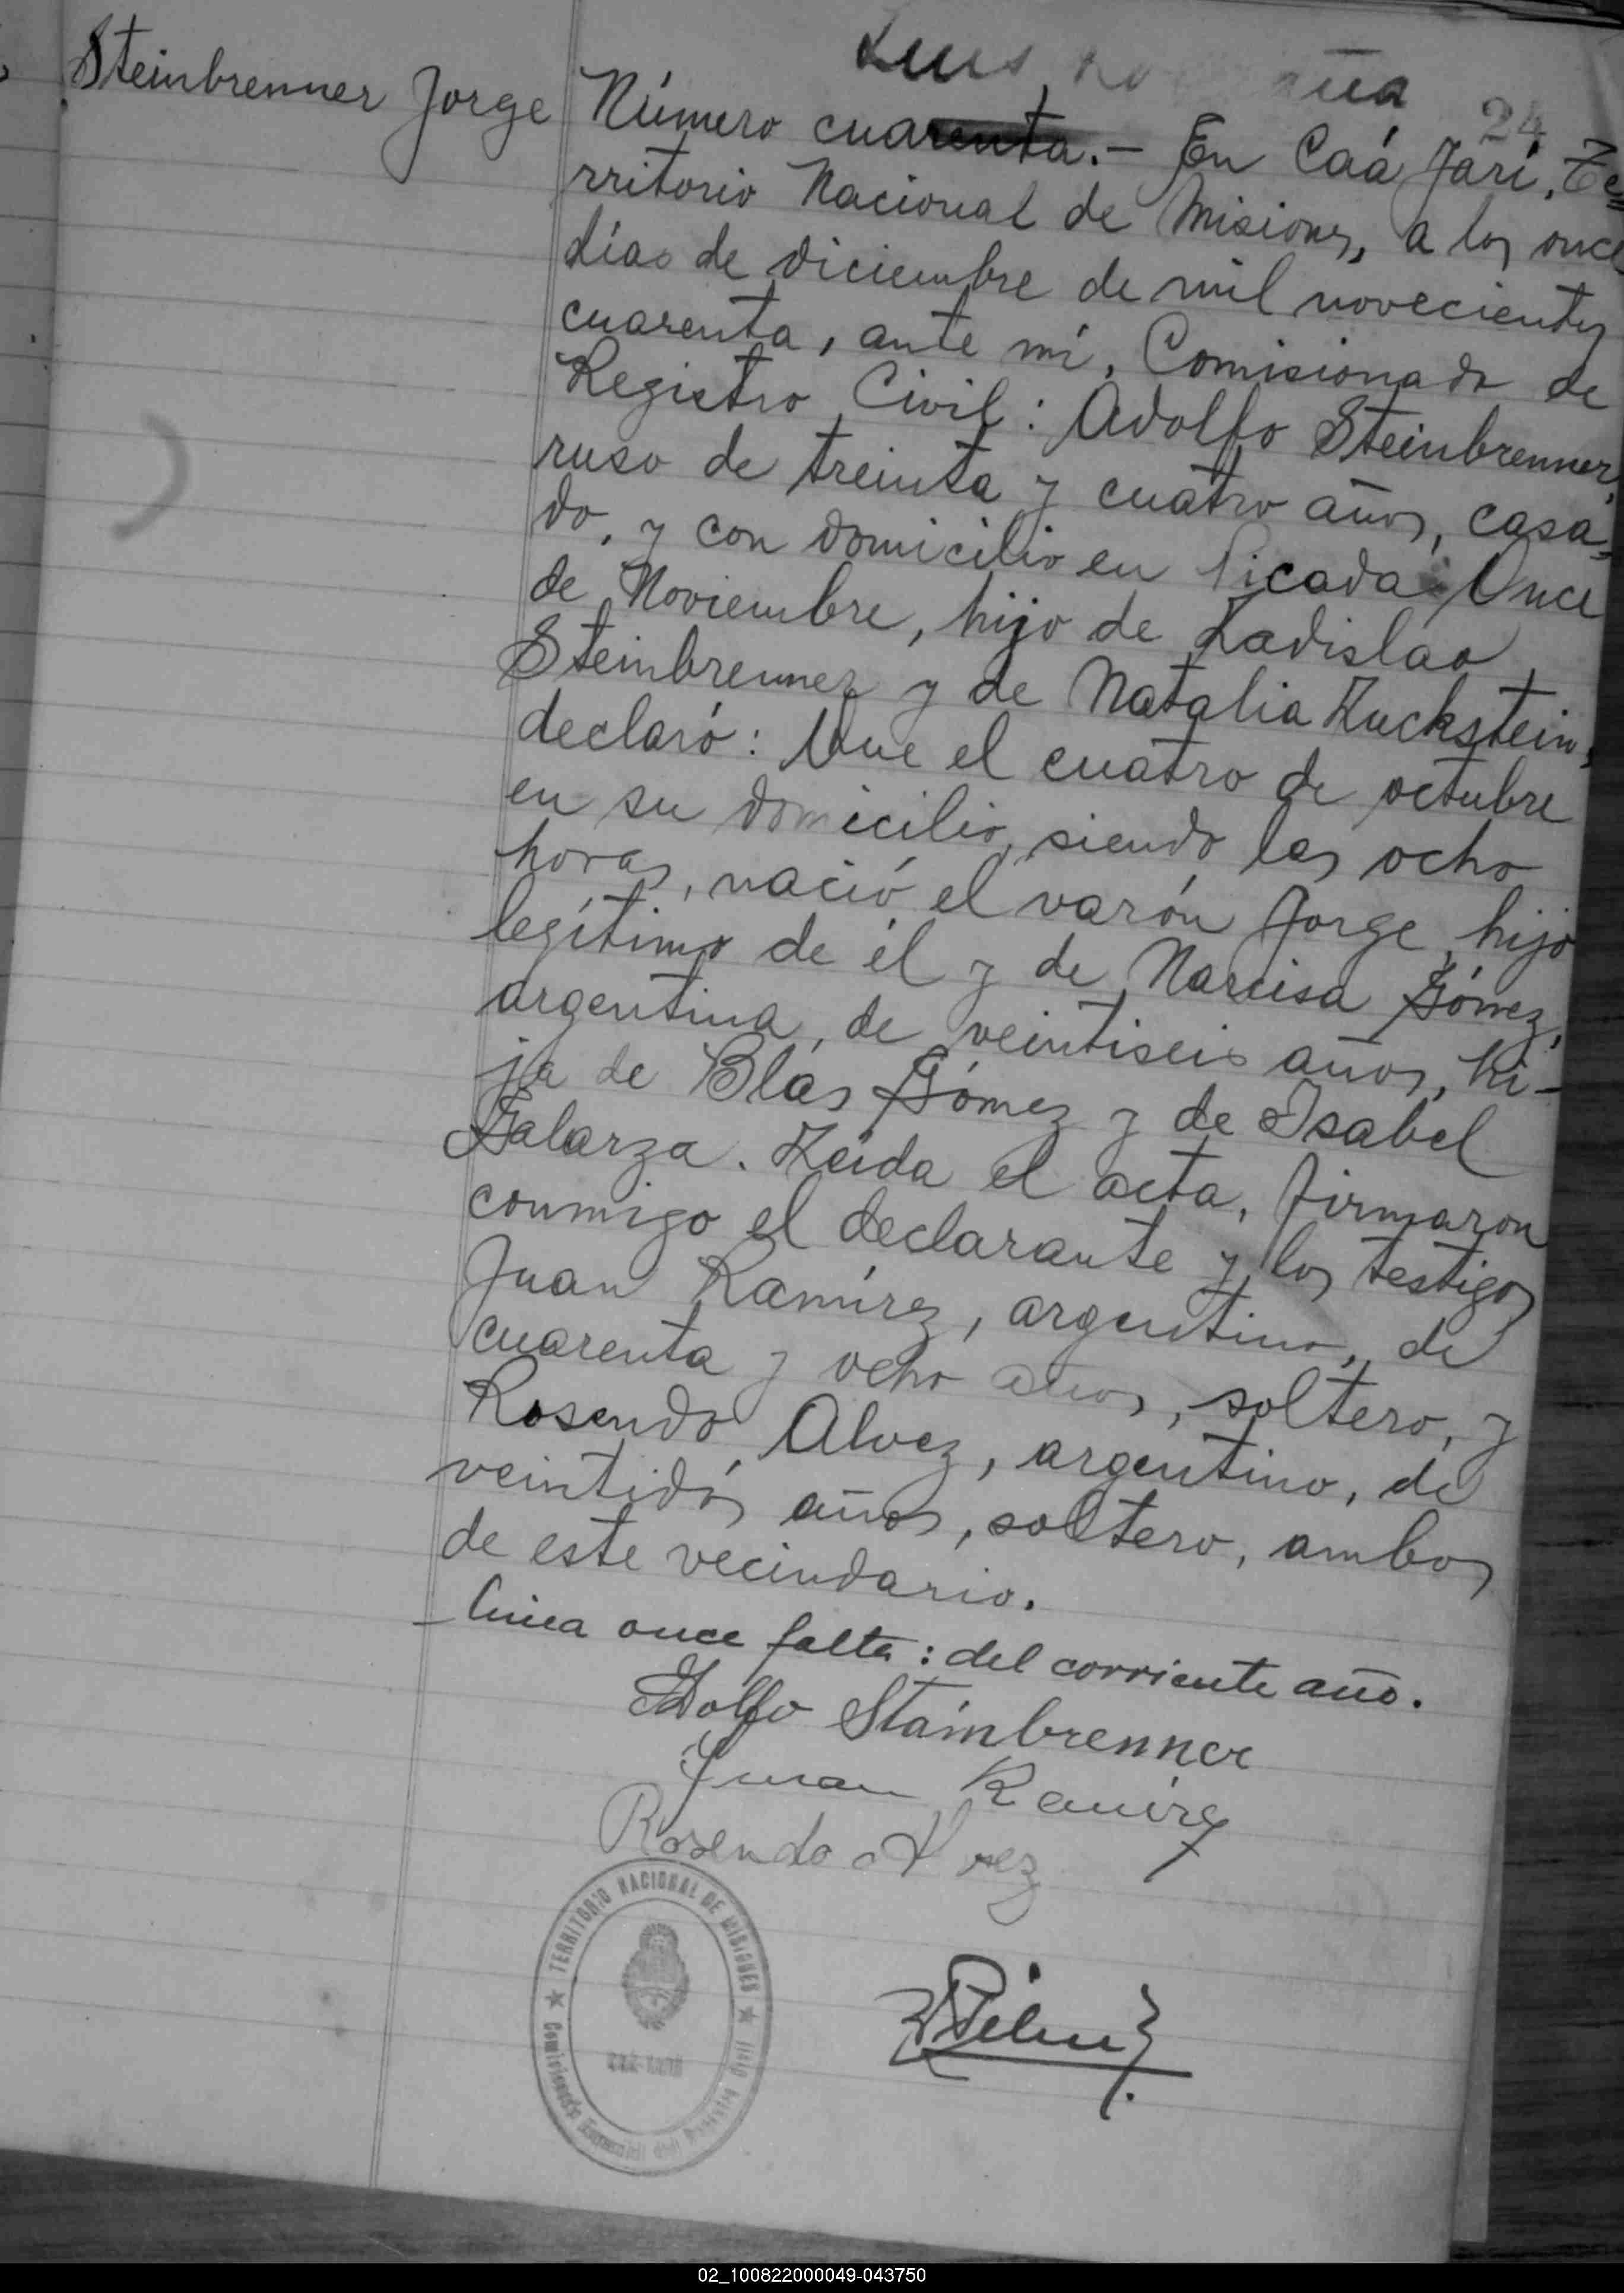 Steinbrenner Jorge
24
Número cuarenta.- En Caá Yarí, Te=
rritorio Nacional de Misiones, a los once
días de diciembre de mil novecientos
cuarenta, ante mí, Comisionado de
Registro Civil: Adolfo Steinbrenner,
ruso de treinta y cuatro años, casa=
do, y con domicilio en Picada Once
de Noviembre, hijo de Ladislao
Steinbrenner y de Natalia Luckstein,
declaró: Que el cuatro de octubre
en su domicilio, siendo las ocho
horas, nació el varón Jorge, hijo
legítimo de él y de Narcisa Gómez,
argentina, de veintiseis años, hi-
ja de Blas Gómez y de Isabel
Galarza. Leída el acta, firmaron
conmigo el declarante y los testigos
Juan Ramírez, argentino, de
cuarenta y ocho años, soltero, y
Rosendo Alvez, argentino, de
veintidós años, soltero, ambos
de este vecindario.
- línea once falta: del corriente año.
Adolfo Stámbrenner
Juan Ramírez
Rosendo Alvez
★ TERRITORIO NACIONAL DE MISIONES ★
CAÁ-YARÍ
02_100822000049-043750